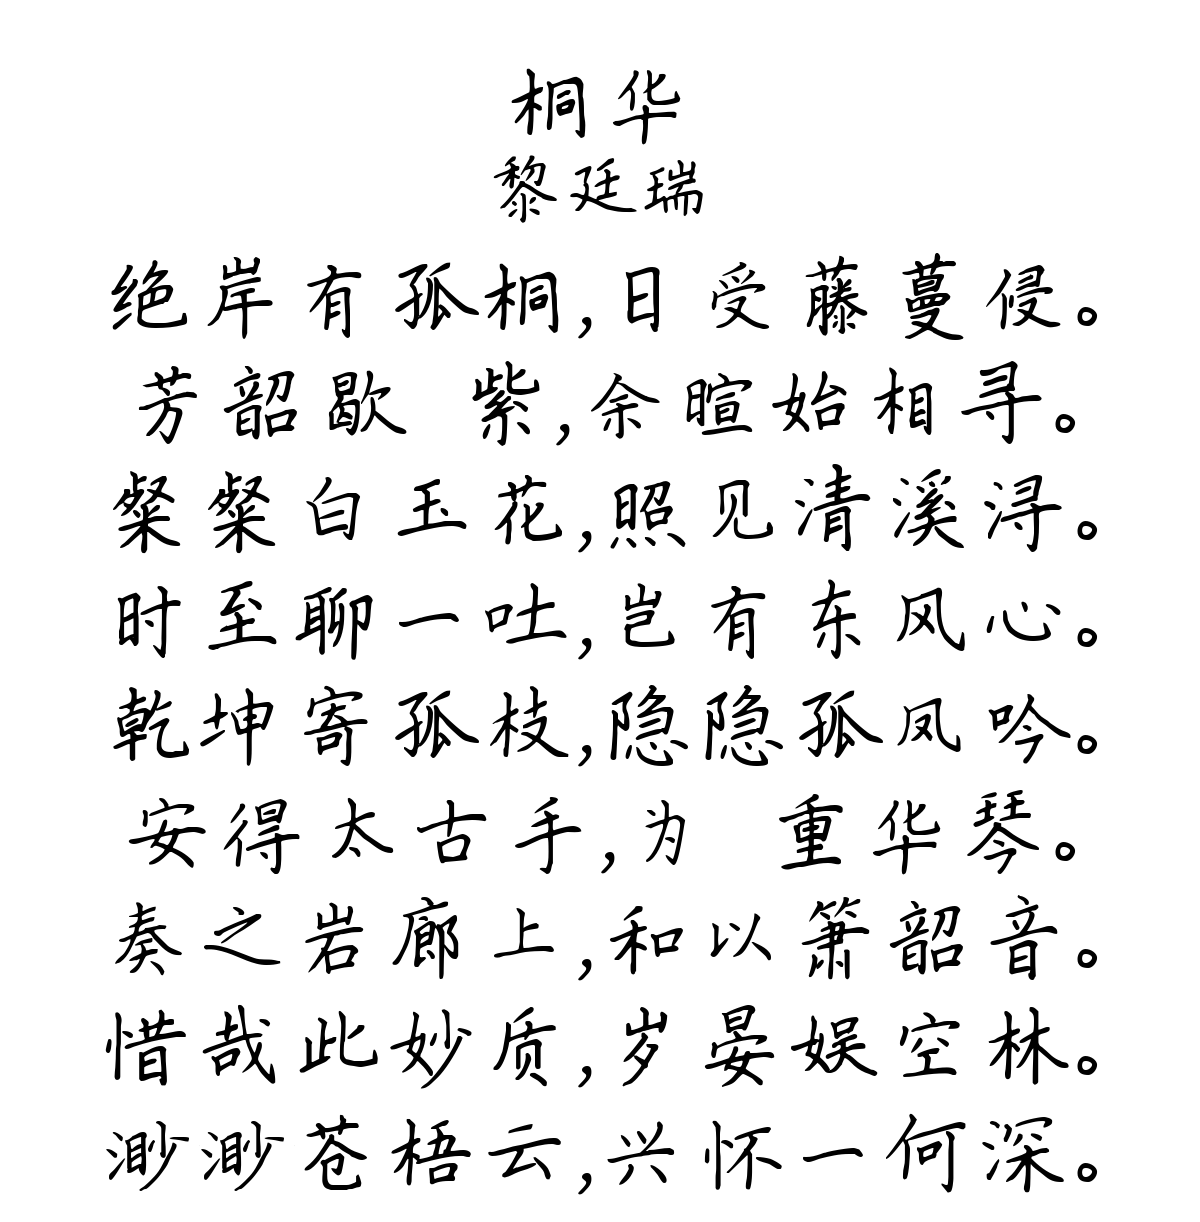 桐华
黎廷瑞
绝岸有孤桐,日受藤蔓侵。
芳韶歇 紫,余暄始相寻。
粲粲白玉花,照见清溪浔。
时至聊一吐,岂有东风心。
乾坤寄孤枝,隐隐孤凤吟。
安得太古手,为 重华琴。
奏之岩廊上,和以箫韶音。
惜哉此妙质,岁晏娱空林。
渺渺苍梧云,兴怀一何深。